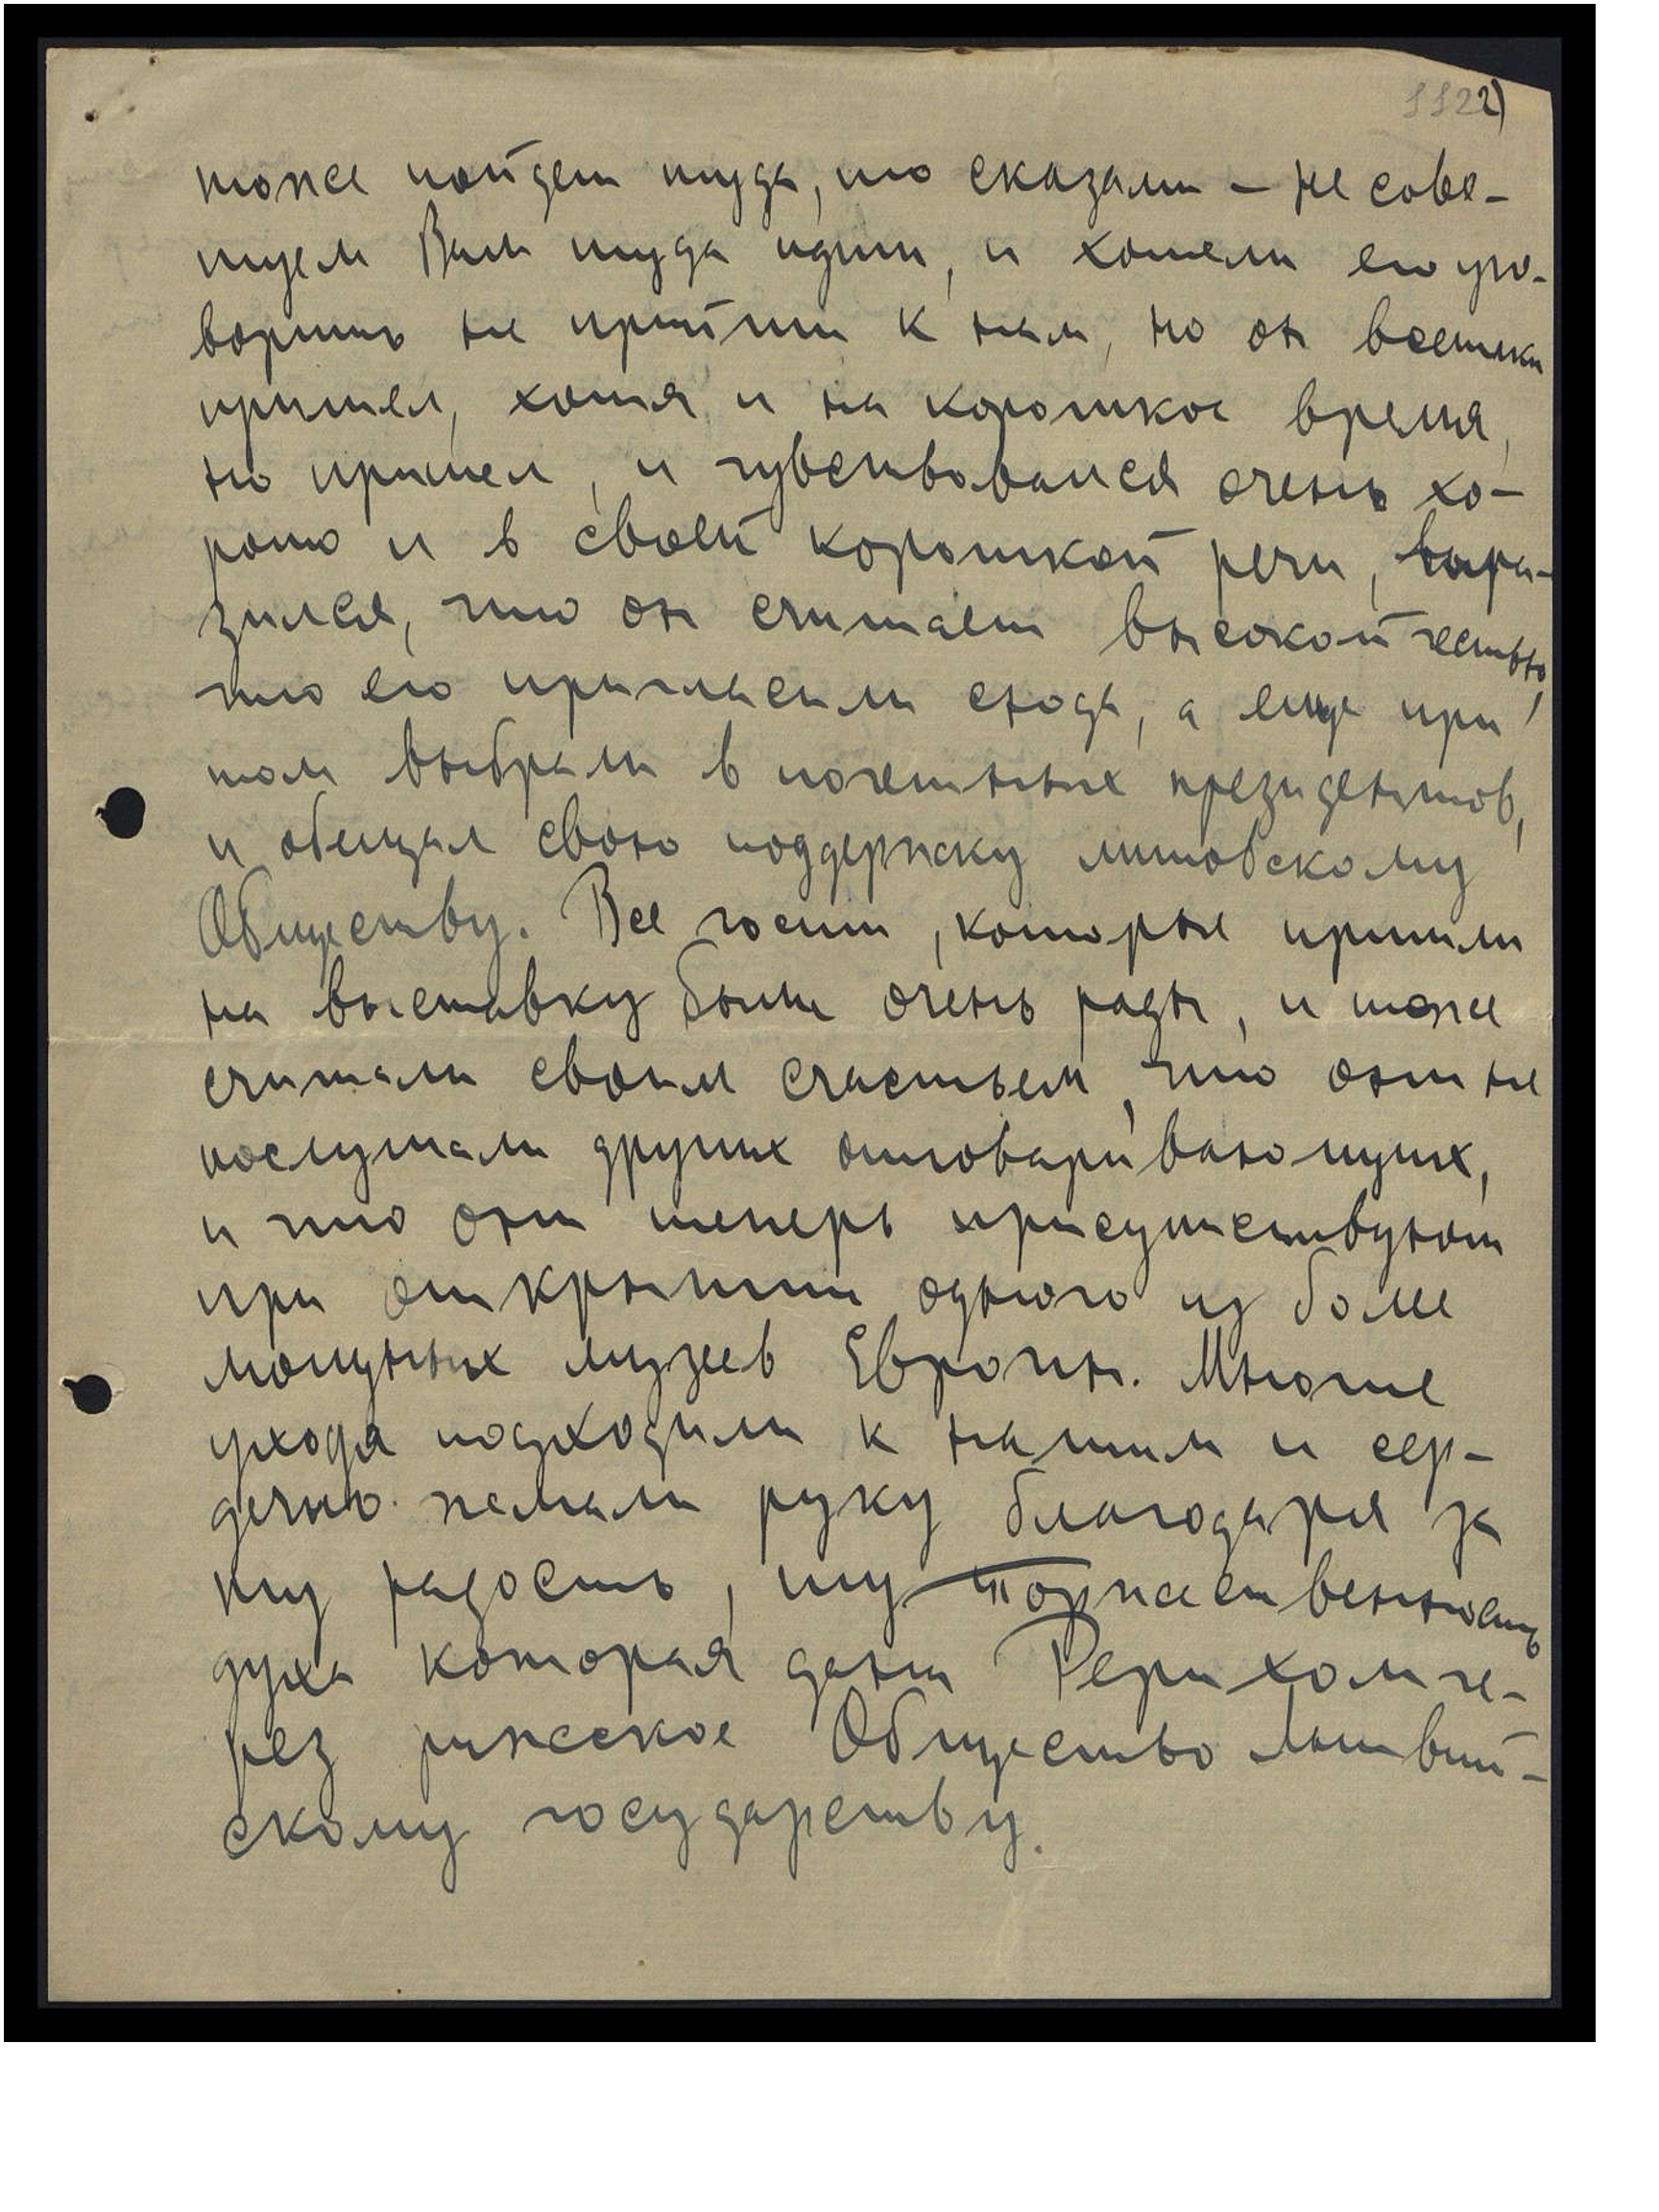 1122)
тоже пойдет туда, то сказали – не сове-
туем Вам туда идти, и хотели его уго-
ворить не прийти к нам, но он всетаки
пришел, хотя и на короткое время,
но пришел, и чувствовался очень хо-
рошо и в своей короткой речи, выра-
зился, что он считает высокой честью,
что его пригласили сюда, а еще при
том выбрали в почетных президентов,
и обещал свою поддержку литовскому
Обществу. Все гости, которые пришли
на выставку были очень рады, и тоже
считали своим счастьем, что они не
послушали других отговаривающих,
и что они теперь присутствуют
при открытии одного из более
мощных музеев Европы. Многие
уходя подходили к нашим и сер-
дечно жмали руку благодаря за
ту радость, ту торжественность
духа которая дана Рерихом че-
рез рижское Общество Латвий-
скому государству.